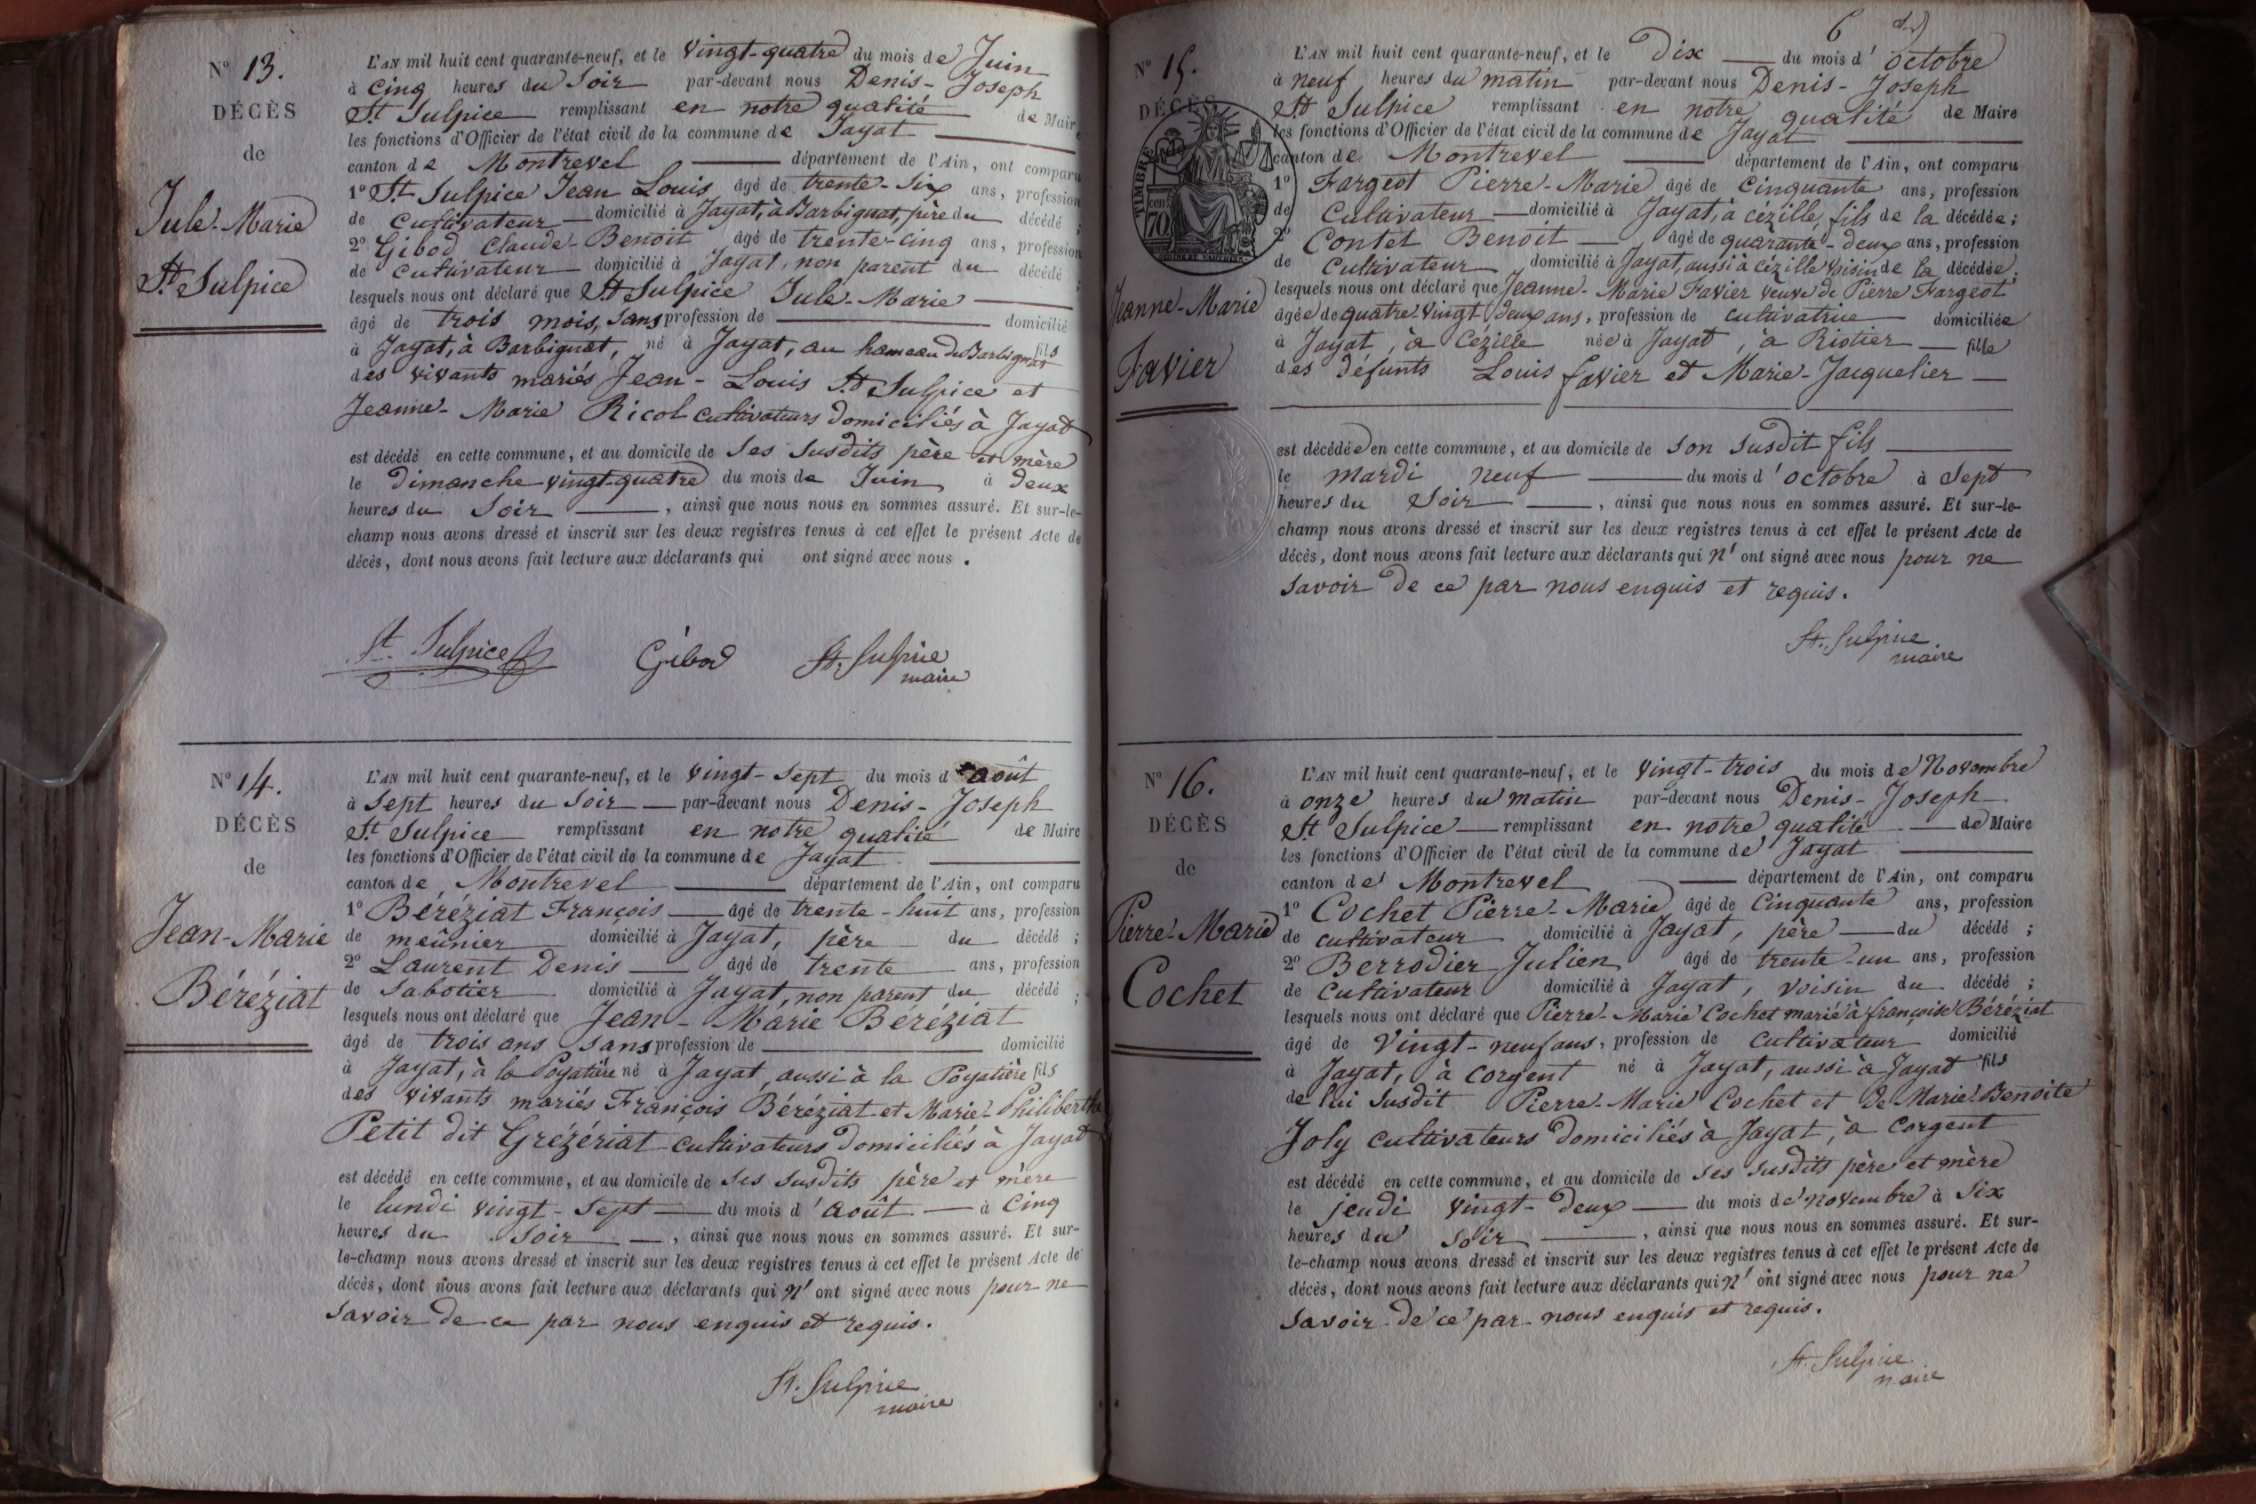 N° 13.
DÉCÈS
de
Jule-Marie
St Sulpice
L'AN mil huit cent quarante-neuf, et le vingt-quatre du mois de Juin
à cinq heures du Soir par-devant nous Denis-Joseph
St Sulpice remplissant en notre qualité de Maire
les fonctions d'Officier de l'état civil de la commune de Jayat
canton de Montrevel département de l'Ain, ont comparu
1° St Sulpice Jean Louis âgé de trente-Six ans, profession
de cultivateur domicilié à Jayat, à Barbignat, père du décédé ;
2° Gibod Claude-Benoit âgé de trente-cinq ans, profession
de cultivateur domicilié à Jayat, non parent du décédé ;
lesquels nous ont déclaré que St Sulpice Jule-Marie
âgé de trois mois, sans profession de domicilié
à Jayat, à Barbignat, né à Jayat, au hameau de Barbignat fils
des vivants mariés Jean-Louis St Sulpice et
Jeanne-Marie Ricol cultivateurs domiciliés à Jayat
est décédé en cette commune, et au domicile de Ses susdits père et mère
le dimanche vingt-quatre du mois de Juin à deux
heures du Soir, ainsi que nous nous en sommes assuré. Et sur-le-
champ nous avons dressé et inscrit sur les deux registres tenus à cet effet le présent Acte de
décès, dont nous avons fait lecture aux déclarants qui ont signé avec nous.
St Sulpice Gibod St. Sulpice
maire
N° 14.
DÉCÈS
de
Jean-Marie
Béréziat
L'AN mil huit cent quarante-neuf, et le vingt-sept du mois d'août
à Sept heures du Soir par-devant nous Denis-Joseph
St Sulpice remplissant en notre qualité de Maire
les fonctions d'Officier de l'état civil de la commune de Jayat
canton de Montrevel département de l'Ain, ont comparu
1° Béréziat François âgé de trente-huit ans, profession
de meûnier domicilié à Jayat, père du décédé ;
2° Laurent Denis âgé de trente ans, profession
de Sabotier domicilié à Jayat, non parent du décédé ;
lesquels nous ont déclaré que Jean-Marie Béréziat
âgé de trois ans sans profession de domicilié
à Jayat, à la Poyatière né à Jayat, aussi à la Poyatière fils
des vivants mariés François Béréziat et Marie-Philiberthe
Petit dit Grézériat cultivateurs domiciliés à Jayat
est décédé en cette commune, et au domicile de ses susdits père et mère
le lundi vingt-sept du mois d'août à Cinq
heures du Soir, ainsi que nous nous en sommes assuré. Et sur-
le-champ nous avons dressé et inscrit sur les deux registres tenus à cet effet le présent Acte de
décès, dont nous avons fait lecture aux déclarants qui n'ont signé avec nous pour ne
savoir de ce par nous enquis et requis.
St. Sulpice
maire
6
N° 15.
DÉCÈS
TIMBRE
70
Jeanne-Marie
Favier
L'AN mil huit cent quarante-neuf, et le Dix du mois d'octobre
à neuf heures du matin par-devant nous Denis-Joseph
St Sulpice remplissant en notre qualité de Maire
les fonctions d'Officier de l'état civil de la commune de Jayat
canton de Montrevel département de l'Ain, ont comparu
1° Fargeot Pierre-Marie âgé de cinquante ans, profession
de Cultivateur domicilié à Jayat, à cézille, fils de la décédée ;
2° Contet Benoit âgé de quarante-deux ans, profession
de Cultivateur domicilié à Jayat, aussi à cézille voisin de la décédée ;
lesquels nous ont déclaré que Jeanne-Marie Favier veuve de Pierre Fargeot
âgée de quatre-vingt deux ans, profession de cultivatrice domiciliée
à Jayat, à Cézille née à Jayat, à Riotier fille
des défunts Louis favier et Marie-Jacquelier
est décédée en cette commune, et au domicile de son susdit fils
le mardi neuf du mois d'octobre à Sept
heures du Soir, ainsi que nous nous en sommes assuré. Et sur-le-
champ nous avons dressé et inscrit sur les deux registres tenus à cet effet le présent Acte de
décès, dont nous avons fait lecture aux déclarants qui n'ont signé avec nous pour ne
savoir de ce par nous enquis et requis.
St. Sulpice
maire
N° 16.
DÉCÈS
de
Pierre-Marie
Cochet
L'AN mil huit cent quarante-neuf, et le vingt-trois du mois de Novembre
à onze heures du matin par-devant nous Denis-Joseph
St Sulpice remplissant en notre qualité de Maire
les fonctions d'Officier de l'état civil de la commune de Jayat
canton de Montrevel département de l'Ain, ont comparu
1° Cochet Pierre-Marie âgé de Cinquante ans, profession
de cultivateur domicilié à Jayat, père du décédé ;
2° Berrodier Julien âgé de trente-un ans, profession
de cultivateur domicilié à Jayat, voisin du décédé ;
lesquels nous ont déclaré que Pierre-Marie Cochet marié à françoise Béréziat
âgé de Vingt-neuf ans, profession de cultivateur domicilié
à Jayat, à corgent né à Jayat, aussi à Jayat fils
de lui susdit Pierre-Marie Cochet et de Marie-Benoite
Joly cultivateurs domiciliés à Jayat, à corgent
est décédé en cette commune, et au domicile de ses susdits père et mère
le jeudi vingt-deux du mois de novembre à Six
heures du soir, ainsi que nous nous en sommes assuré. Et sur-
le-champ nous avons dressé et inscrit sur les deux registres tenus à cet effet le présent Acte de
décès, dont nous avons fait lecture aux déclarants qui n'ont signé avec nous pour ne
savoir de ce par nous enquis et requis.
St. Sulpice
maire